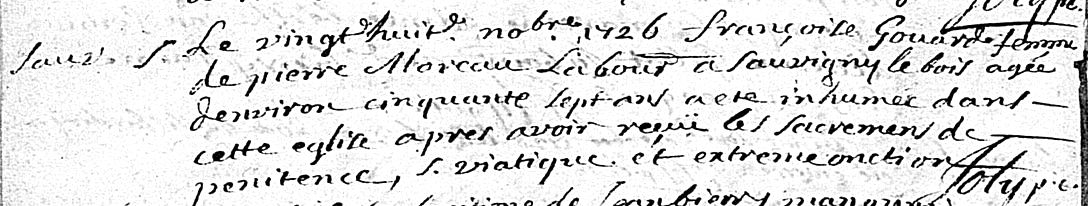 Sauv. S. Le vingt huit.e no.bre 1726 françoise Gouard femme
de pierre Moreau Labour.r a Sauvigny le bois agée
d'environ cinquante sept ans a eté inhumée dans
cette eglise apres avoir reçuü les sacremens de
penitence, s. viatique et extreme onction